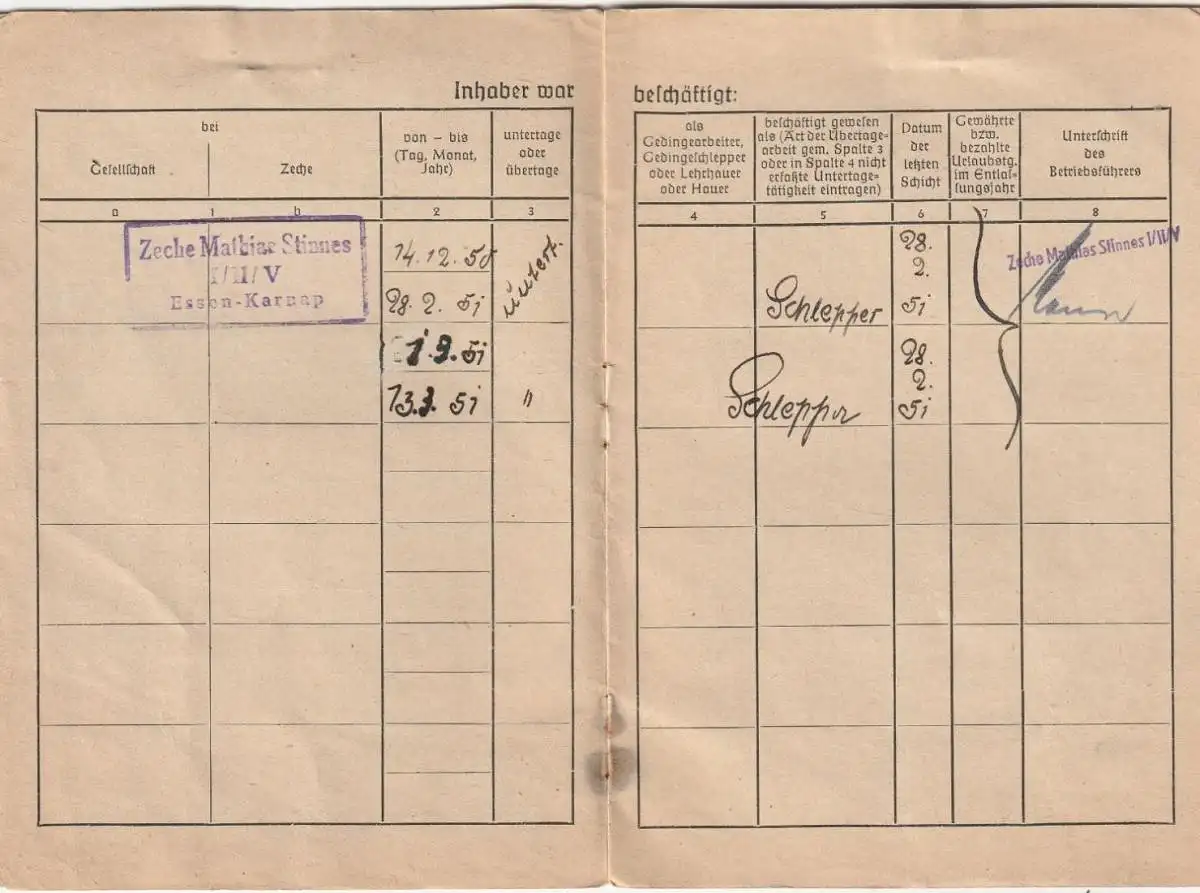 Inhaber war beschäftigt:
bei
Gesellschaft
Zeche
von – bis
(Tag, Monat,
Jahr)
untertage
oder
übertage
als
Gedingearbeiter,
Gedingeschlepper
oder Lehrhauer
oder Hauer
beschäftigt gewesen
als (Art der Übertage-
arbeit gem. Spalte 3
oder in Spalte 4 nicht
erfaßte Untertage-
tätigkeit eintragen)
Datum
der
letzten
Schicht
Gewährte
bzw.
bezahlte
Urlaubstg.
im Entlas-
sungsjahr
Unterschrift
des
Betriebsführers
a 1 b 2 3 4 5 6 7 8
Zeche Mathias Stinnes
I/II/V
Essen-Karnap
14.12.50
28.2.51
untert.
Schlepper
28.
2.
51
Zeche Mathias Stinnes I/II/V
51
13.3.51
"
Schlepper
28.
2.
51